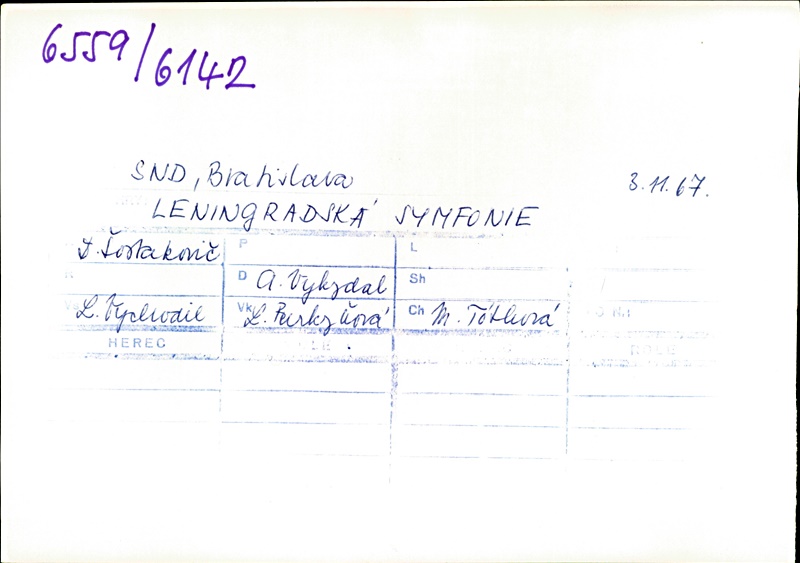 6559/6142
SND, Bratislava 3.11.67.
LENINGRADSKÁ SYMFONIE
D. Šostakovič P L
R D A. Vykydal Sh
Vs L. Vychodil Vk L. Purkyňová Ch M. Tóthová
HEREC ROLE